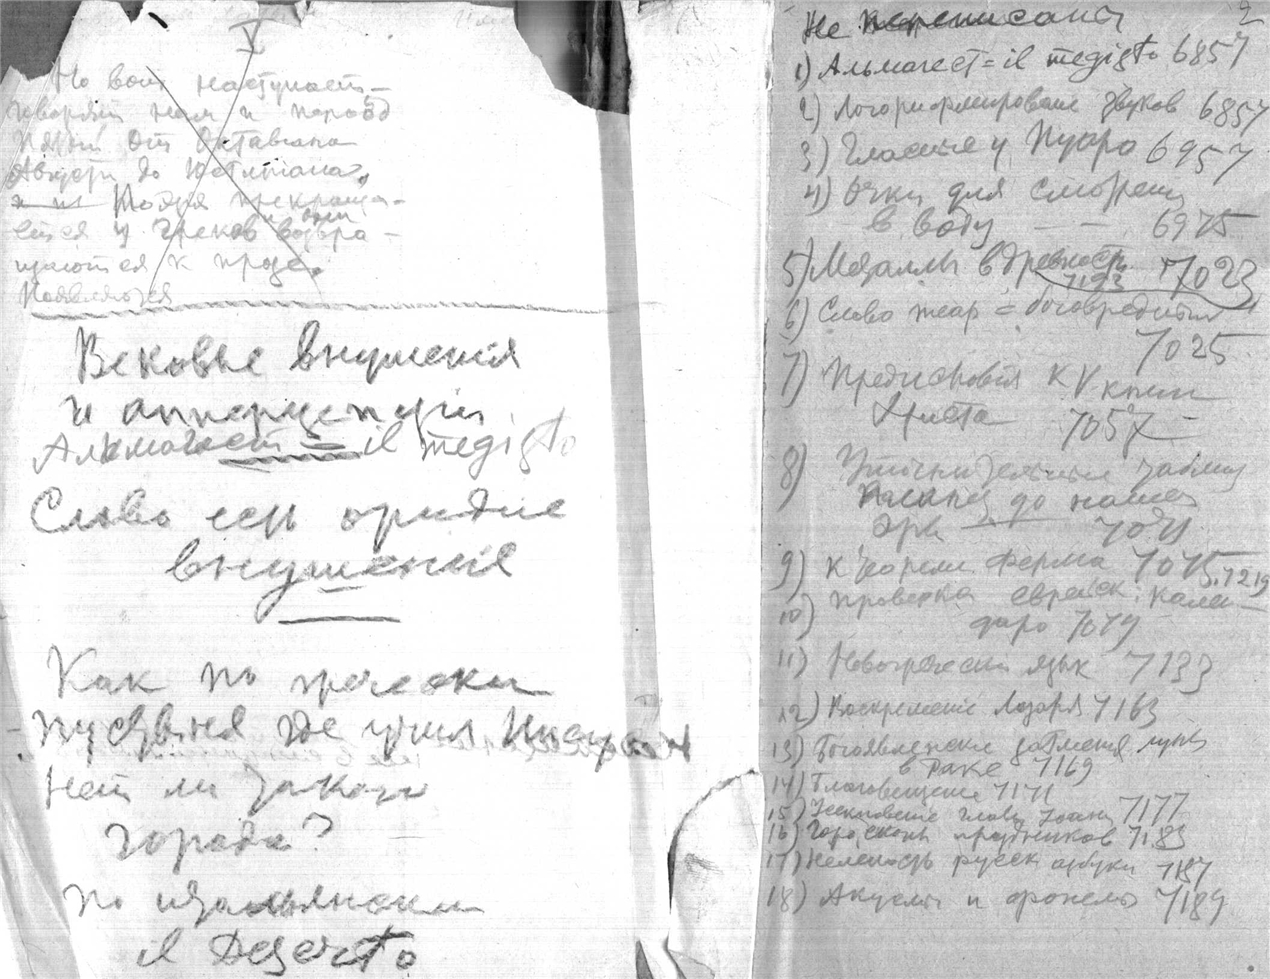 V
Но вот наступает
и период
От Октавиана
Августа до Юстиниана,
Тогда прекраща-
ется у греков и они возвра-
щаются к прозе.
Появляются
Вековые внушенія
и апперцепціи.
Альмагест = il megisto
Слово есть орудие
внушенія
Как по гречески
пустыня где учил
Нет ли такого
города?
по итальянски
il Deserto
Не переписаны 2
1) Альмагест = il megisto 6857
2) Логорифмирование звуков 6857
3) Гласные у 6957
4) Очки для смотрения
в воду — — 6975
5) Металлы в древности 7023
7123
6) Слово жеар = боговредитель
7025
7) Предисловія к V книге
Христа 7057
8) Уточнительные таблицы
Пасхалии до нашей
эры
9) К теореме Ферма 7075, 7219
10) Проверка еврейск. кален-
даря 7079
11) Новогреческий язык 7133
12) Воскрешение Лазаря 7163
13) Богоявленские затменія луны
в Раке 7169
14) Благовещение 7171
15) Усекновение главы Иоанна 7177
16) Гороскопы праздников 7183
17) Нелепость русск азбуки 7187
18) Акулы и 7189